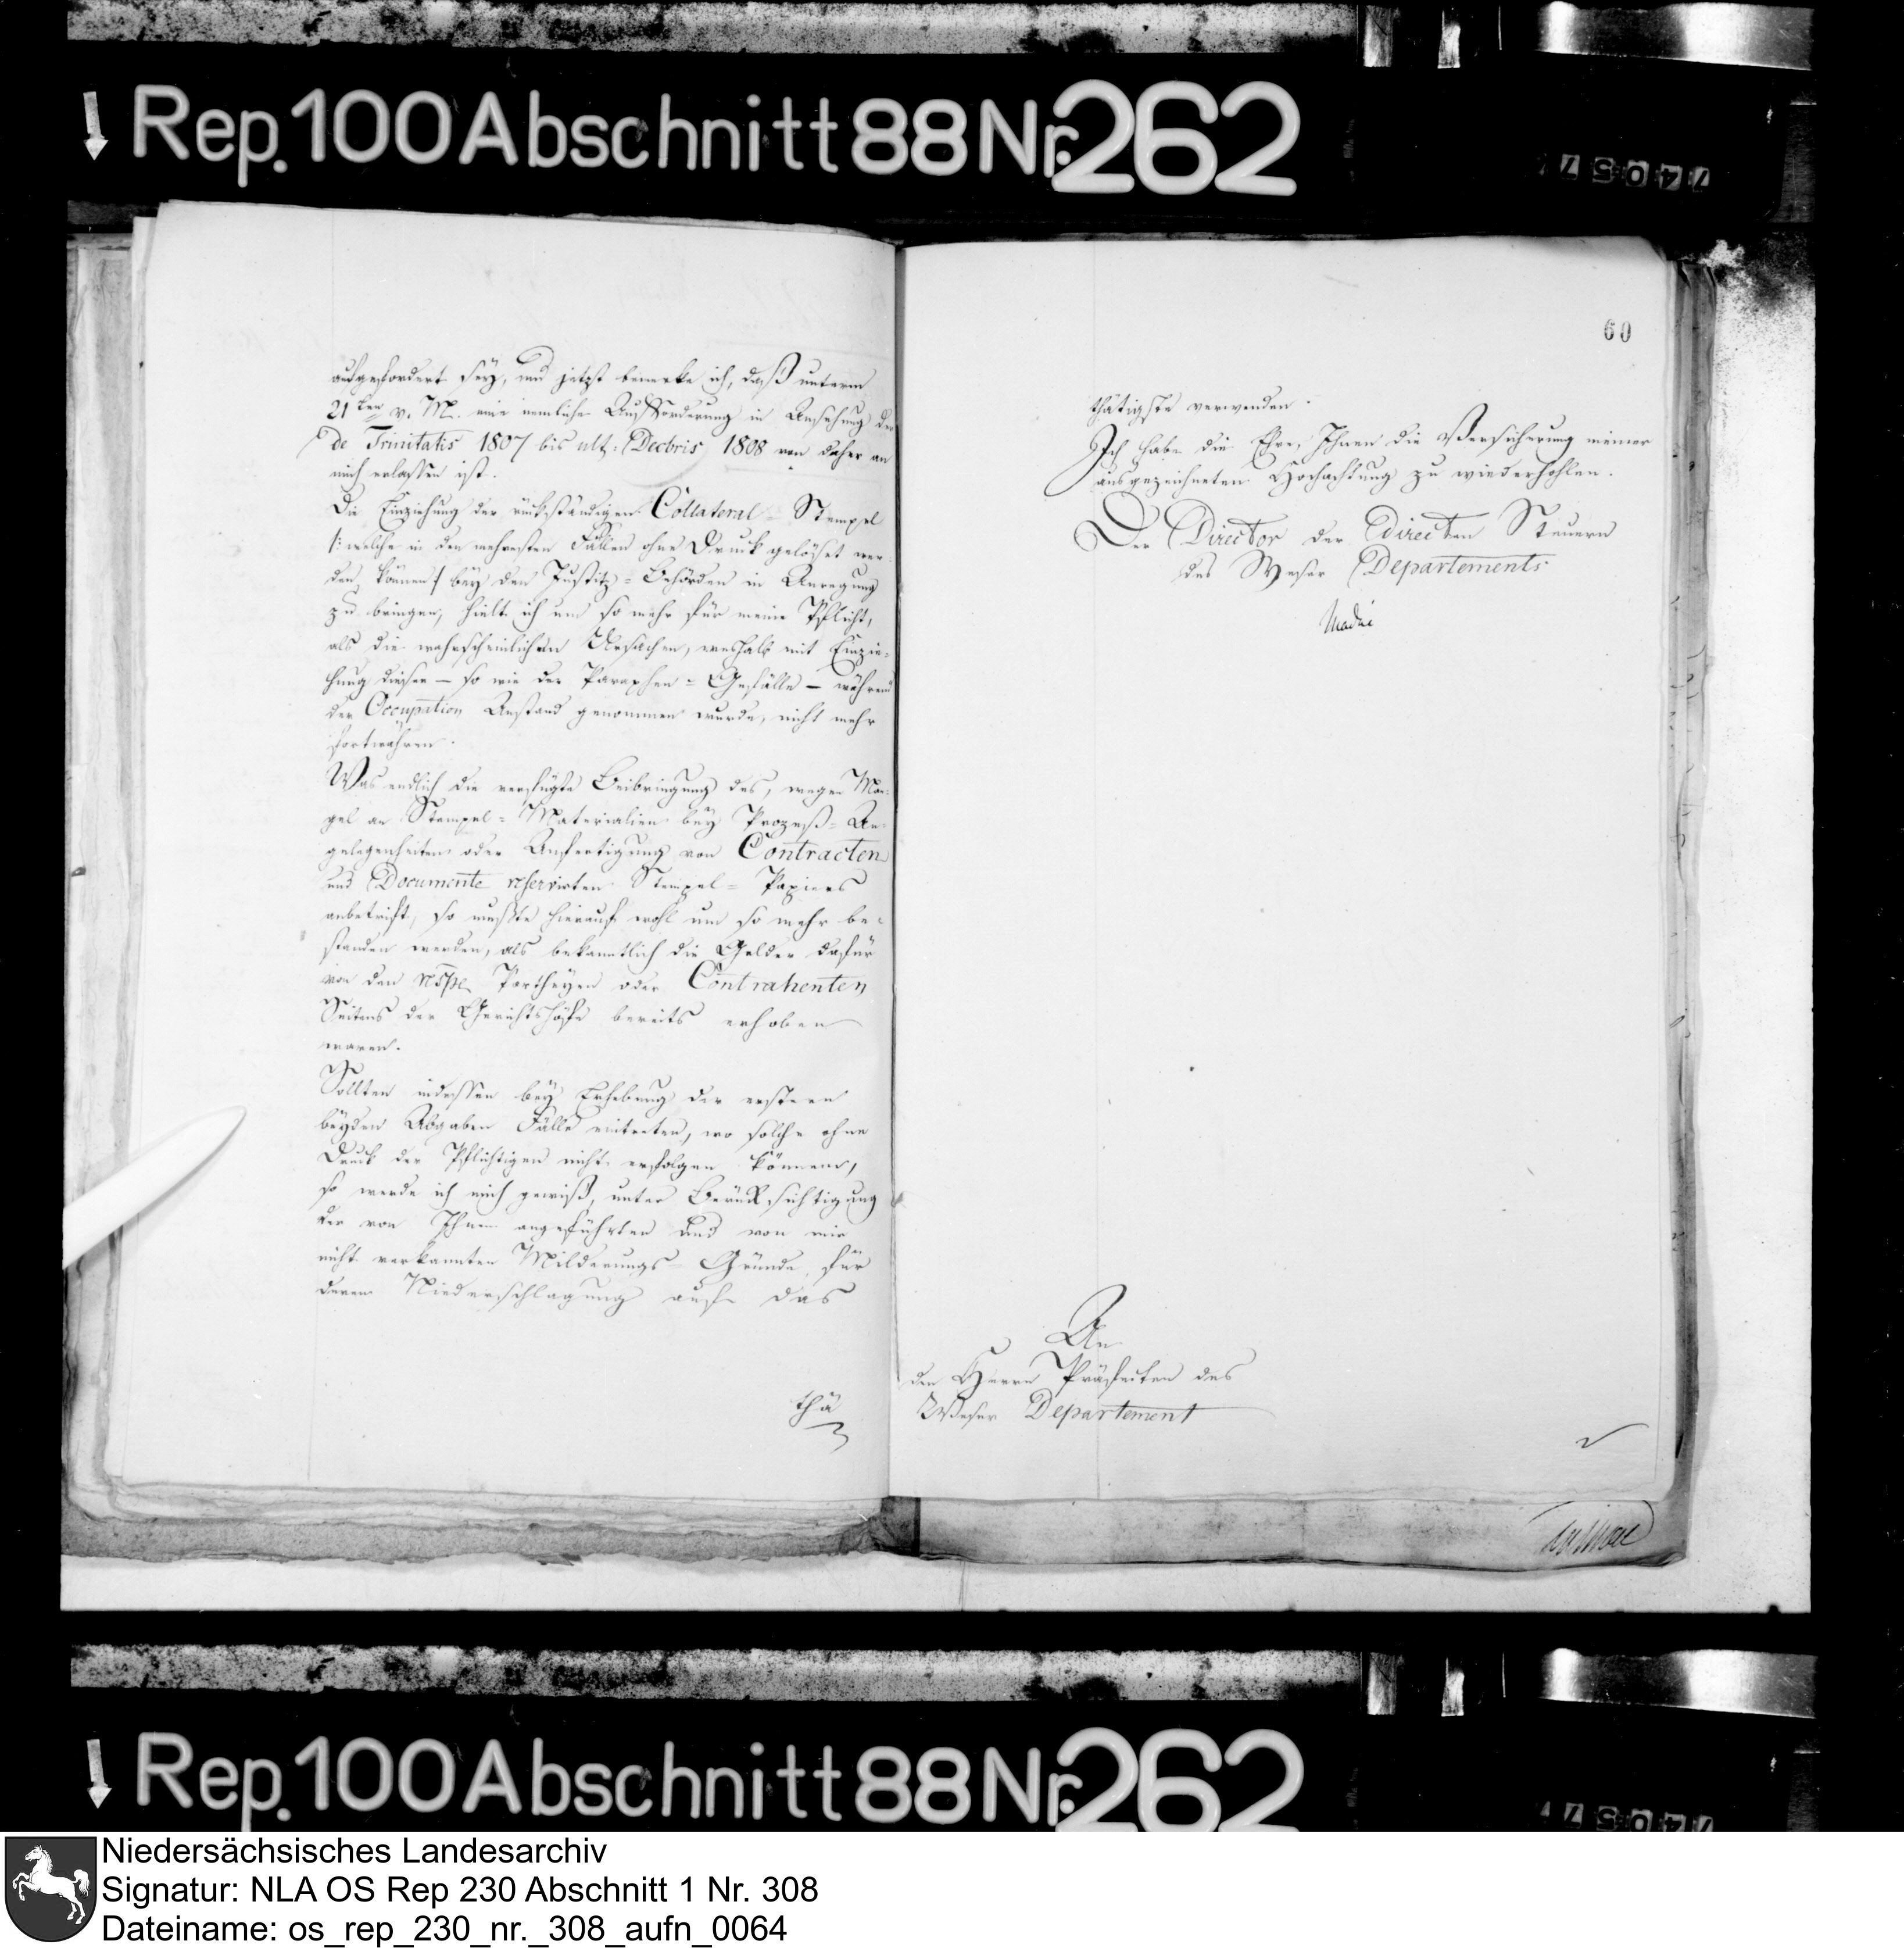 Rep. 100 Abschnitt 88 Nr. 262
74057
aufgefordert sey, und jetzt bemerke ich, daß unterm
21ten v. M. eine nemliche Aufforderung in Ansehung der
de Trinitatis 1807 bis ult: Decbris 1808 von daher an
mich erlassen ist.
Die Einziehung der rückständigen Collateral-Stempel
/: welche in den mehresten Fällen ohne Druck gelöset wer-
den können :/ bey den Justitz-Behörden in Anregung
zu bringen, hielt ich um so mehr für meine Pflicht,
als die wahrscheinlichen Ursachen, weshalb mit Einzie-
hung dieser – so wie der Paraphen-Gefälle – während
der Occupation Anstand genommen wurde, nicht mehr
fortwähren.
Was endlich die verfügte Beibringung des, wegen Man-
gel an Stempel-Materialien bey Prozeß-An-
gelegenheiten oder Ausfertigung von Contracten
und Documente reservirten Stempel-Papiers
anbetrift, so mußte hierauf wohl um so mehr be-
standen werden, als bekanntlich die Gelder dafür
von den respe Partheyen oder Contrahenten
Seitens der Gerichtshöfe bereits erhoben
waren.
Sollten indessen bey Erhebung der erstern
beyden Abgaben Fälle eintreten, wo solche ohne
Druck der Pflichtigen nicht erfolgen können,
so werde ich mich gewiß, unter Berücksichtigung
der von Ihnen angeführten und von mir
nicht verkannten Milderungs-Gründe, für
deren Niederschlagung auf das
thä
60
thätigste verwenden.
Ich habe die Ehre, Ihnen die Versicherung meiner
ausgezeichneten Hochachtung zu wiederhohlen.
Der Director der directen Steuern
des Weser Departements
An
den Herrn Präfecten des
Weser Departement
Rep. 100 Abschnitt 88 Nr. 262
74057
Niedersächsisches Landesarchiv
Signatur: NLA OS Rep 230 Abschnitt 1 Nr. 308
Dateiname: os_rep_230_nr._308_aufn_0064